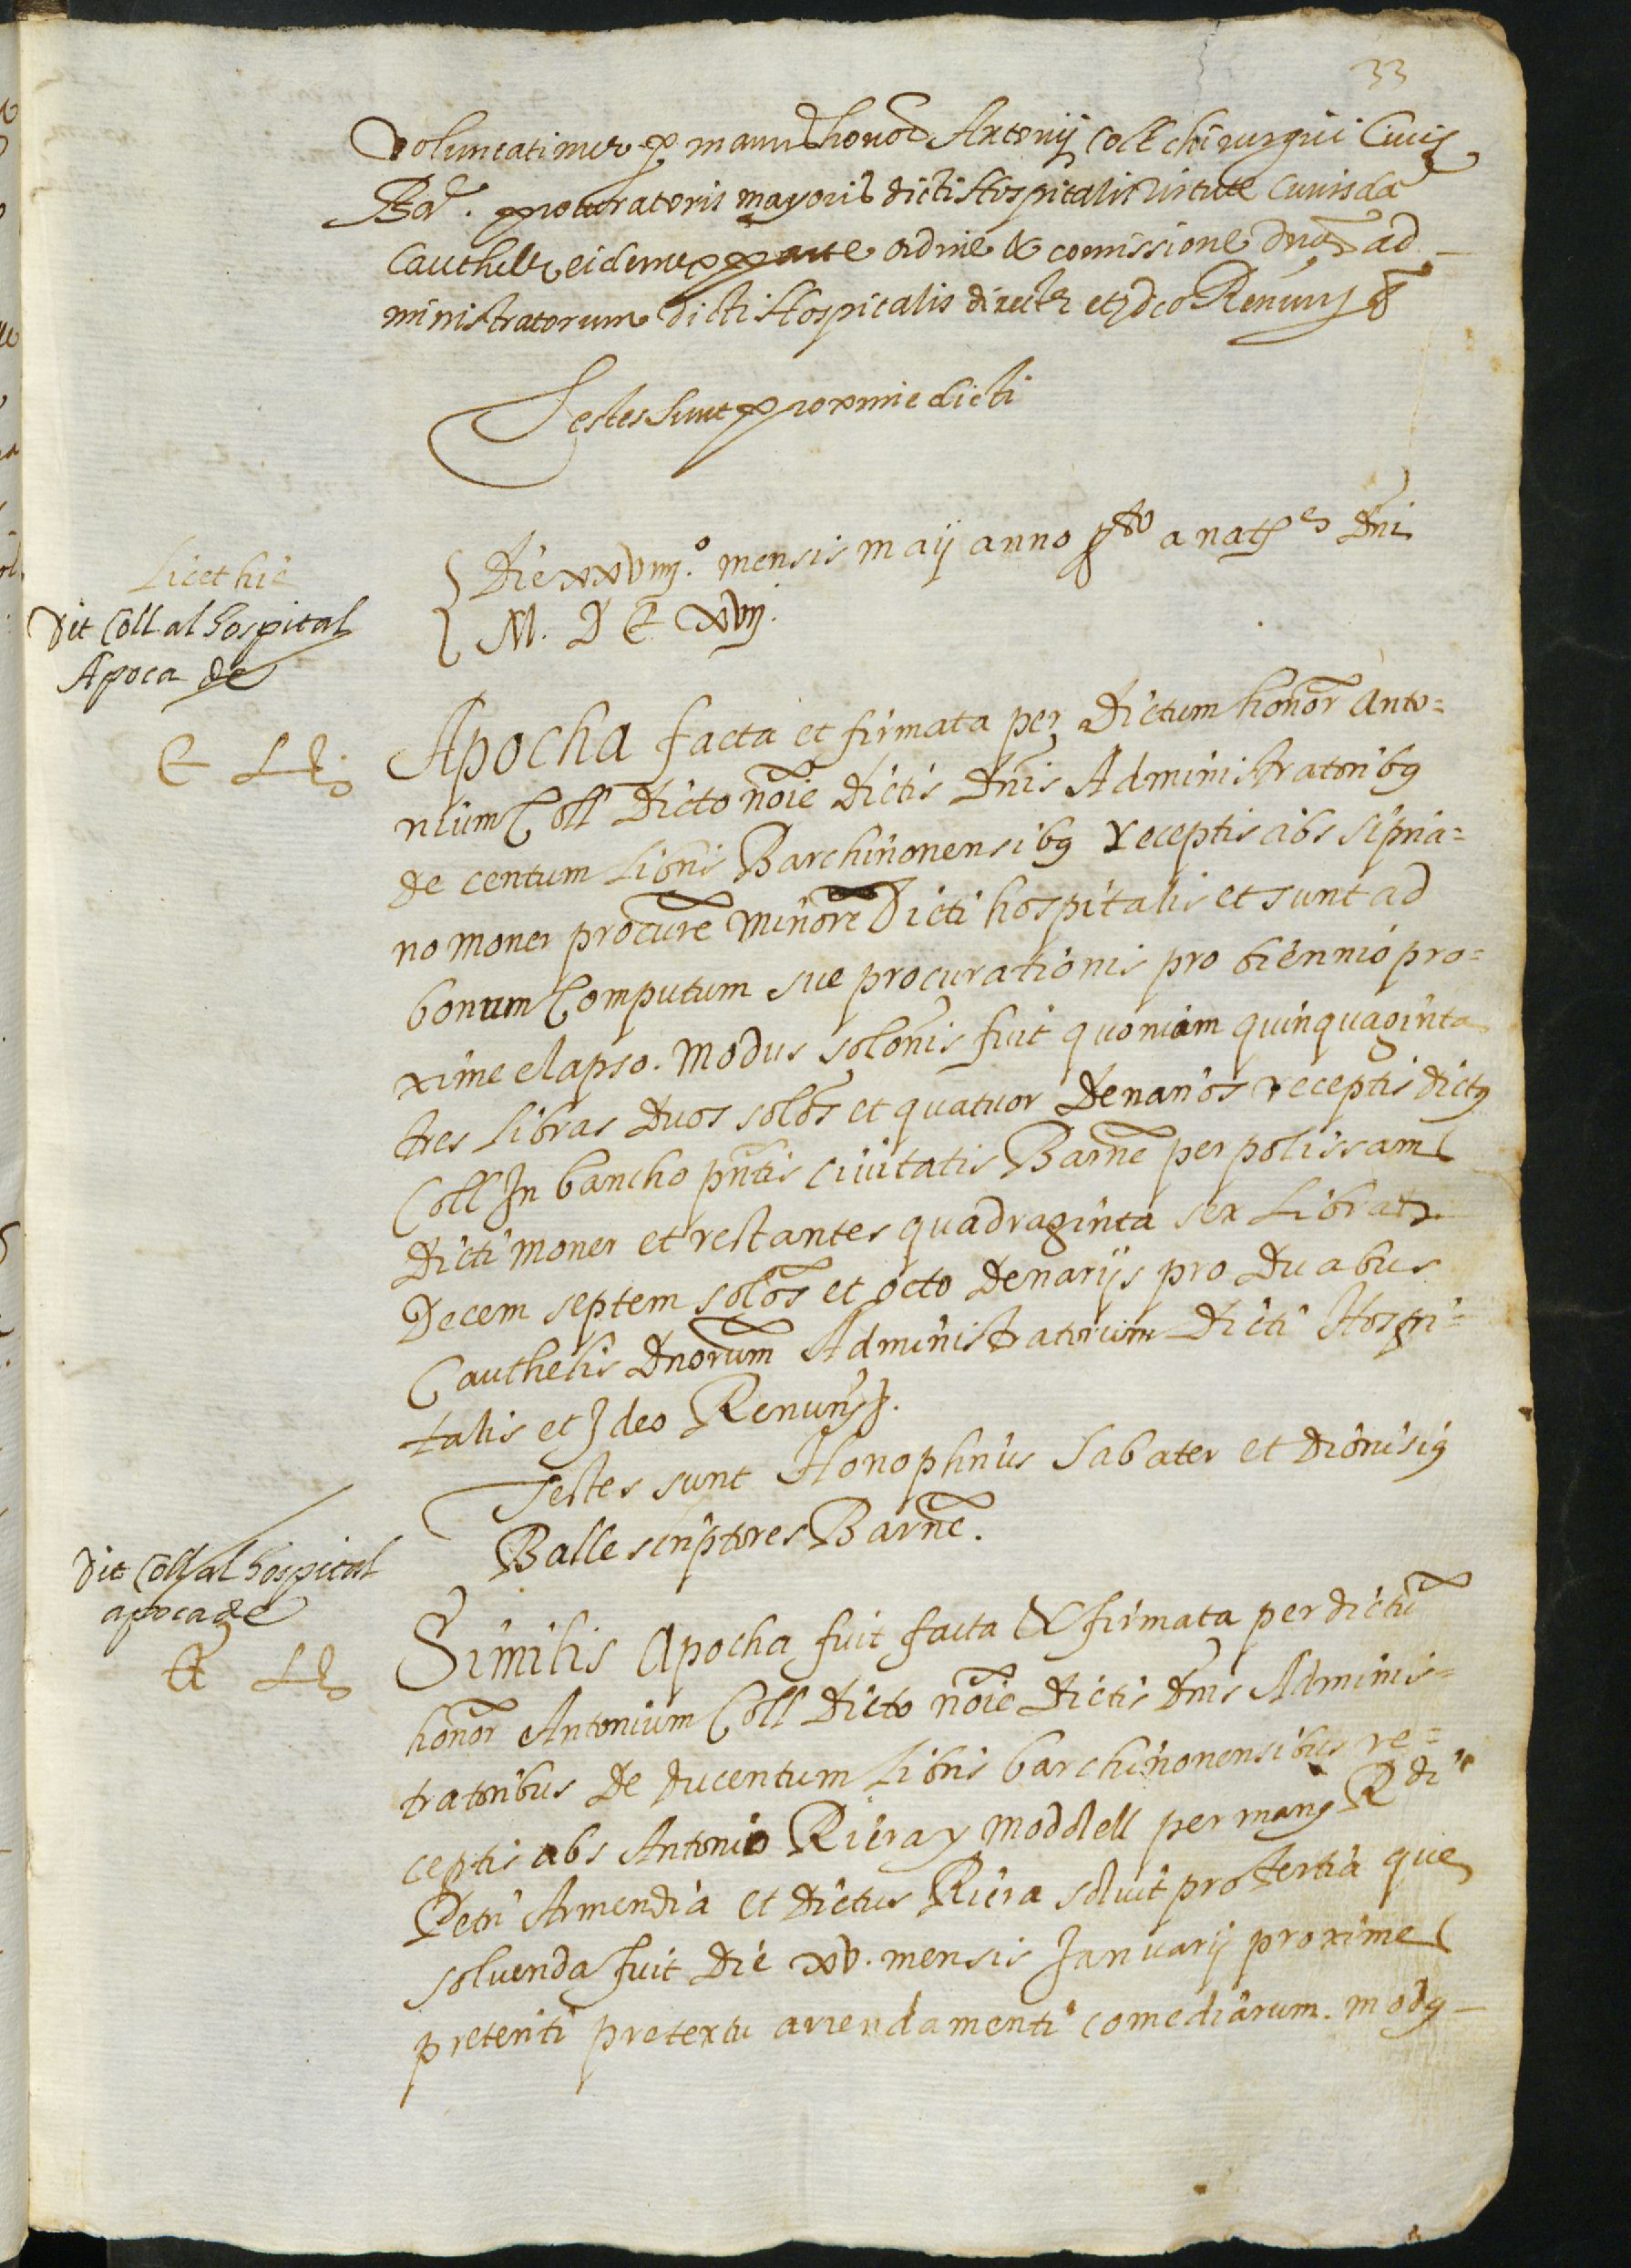 33
voluntatimer per manus honor Antonij Coll chirurgici Civis
Bar. procuratoris mayoris dicti Hospitalis virtute cuiusda
cauthele eidem ex parte ordine et comissione dnor ad
ministratorum dicti Hospitalis directe et Ideo Renun
Testes sunt proxime dicti
Die xxviiij.º mensis maij anno pdto a natte Dni
M. D C xvij.
Licet hic
Dit Coll al hospital
Apoca de
C Ll.
Apocha facta et firmata per Dictum honor Anto=
nium Coll Dicto noie Dictis Dnis Administratoribus
de centum Libris Barchinonensibus receptis abs Sipria=
no moner procure minore Dicti hospitalis et sunt ad
bonum Computum sue procurationis pro biennio pro=
xime elapso. Modus solonis fuit quoniam quinquaginta
tres Libras Duos solos et quatuor Denarios receptis dictus
Coll In bancho pntis Civitatis Barne per polissam
Dicti moner et restantes quadraginta sex Libras
Decem septem solos et octo Denarijs pro Duabus
Cauthelis Dnorum Administratorum Dicti Hospi=
talis et Ideo Renuns.
Testes sunt Honophrius Sabater et Dionisius
Balle scriptores Barne.
Dit Coll al hospital
apoca de
CC Ll
Similis Apocha fuit facta & firmata per dictu
honor Antonium Coll Dicto noie Dictis Dnis Adminis=
tratoribus De Ducentum Libris barchinonensibus re=
ceptis abs Antonio Riera y Moddell per manus Rdi
Petri Armendia et Dictus Riera solvit pro tertia que
solvenda fuit Die xv. mensis Januarij proxime
preteriti pretextu arrendamenti comediarum. modus